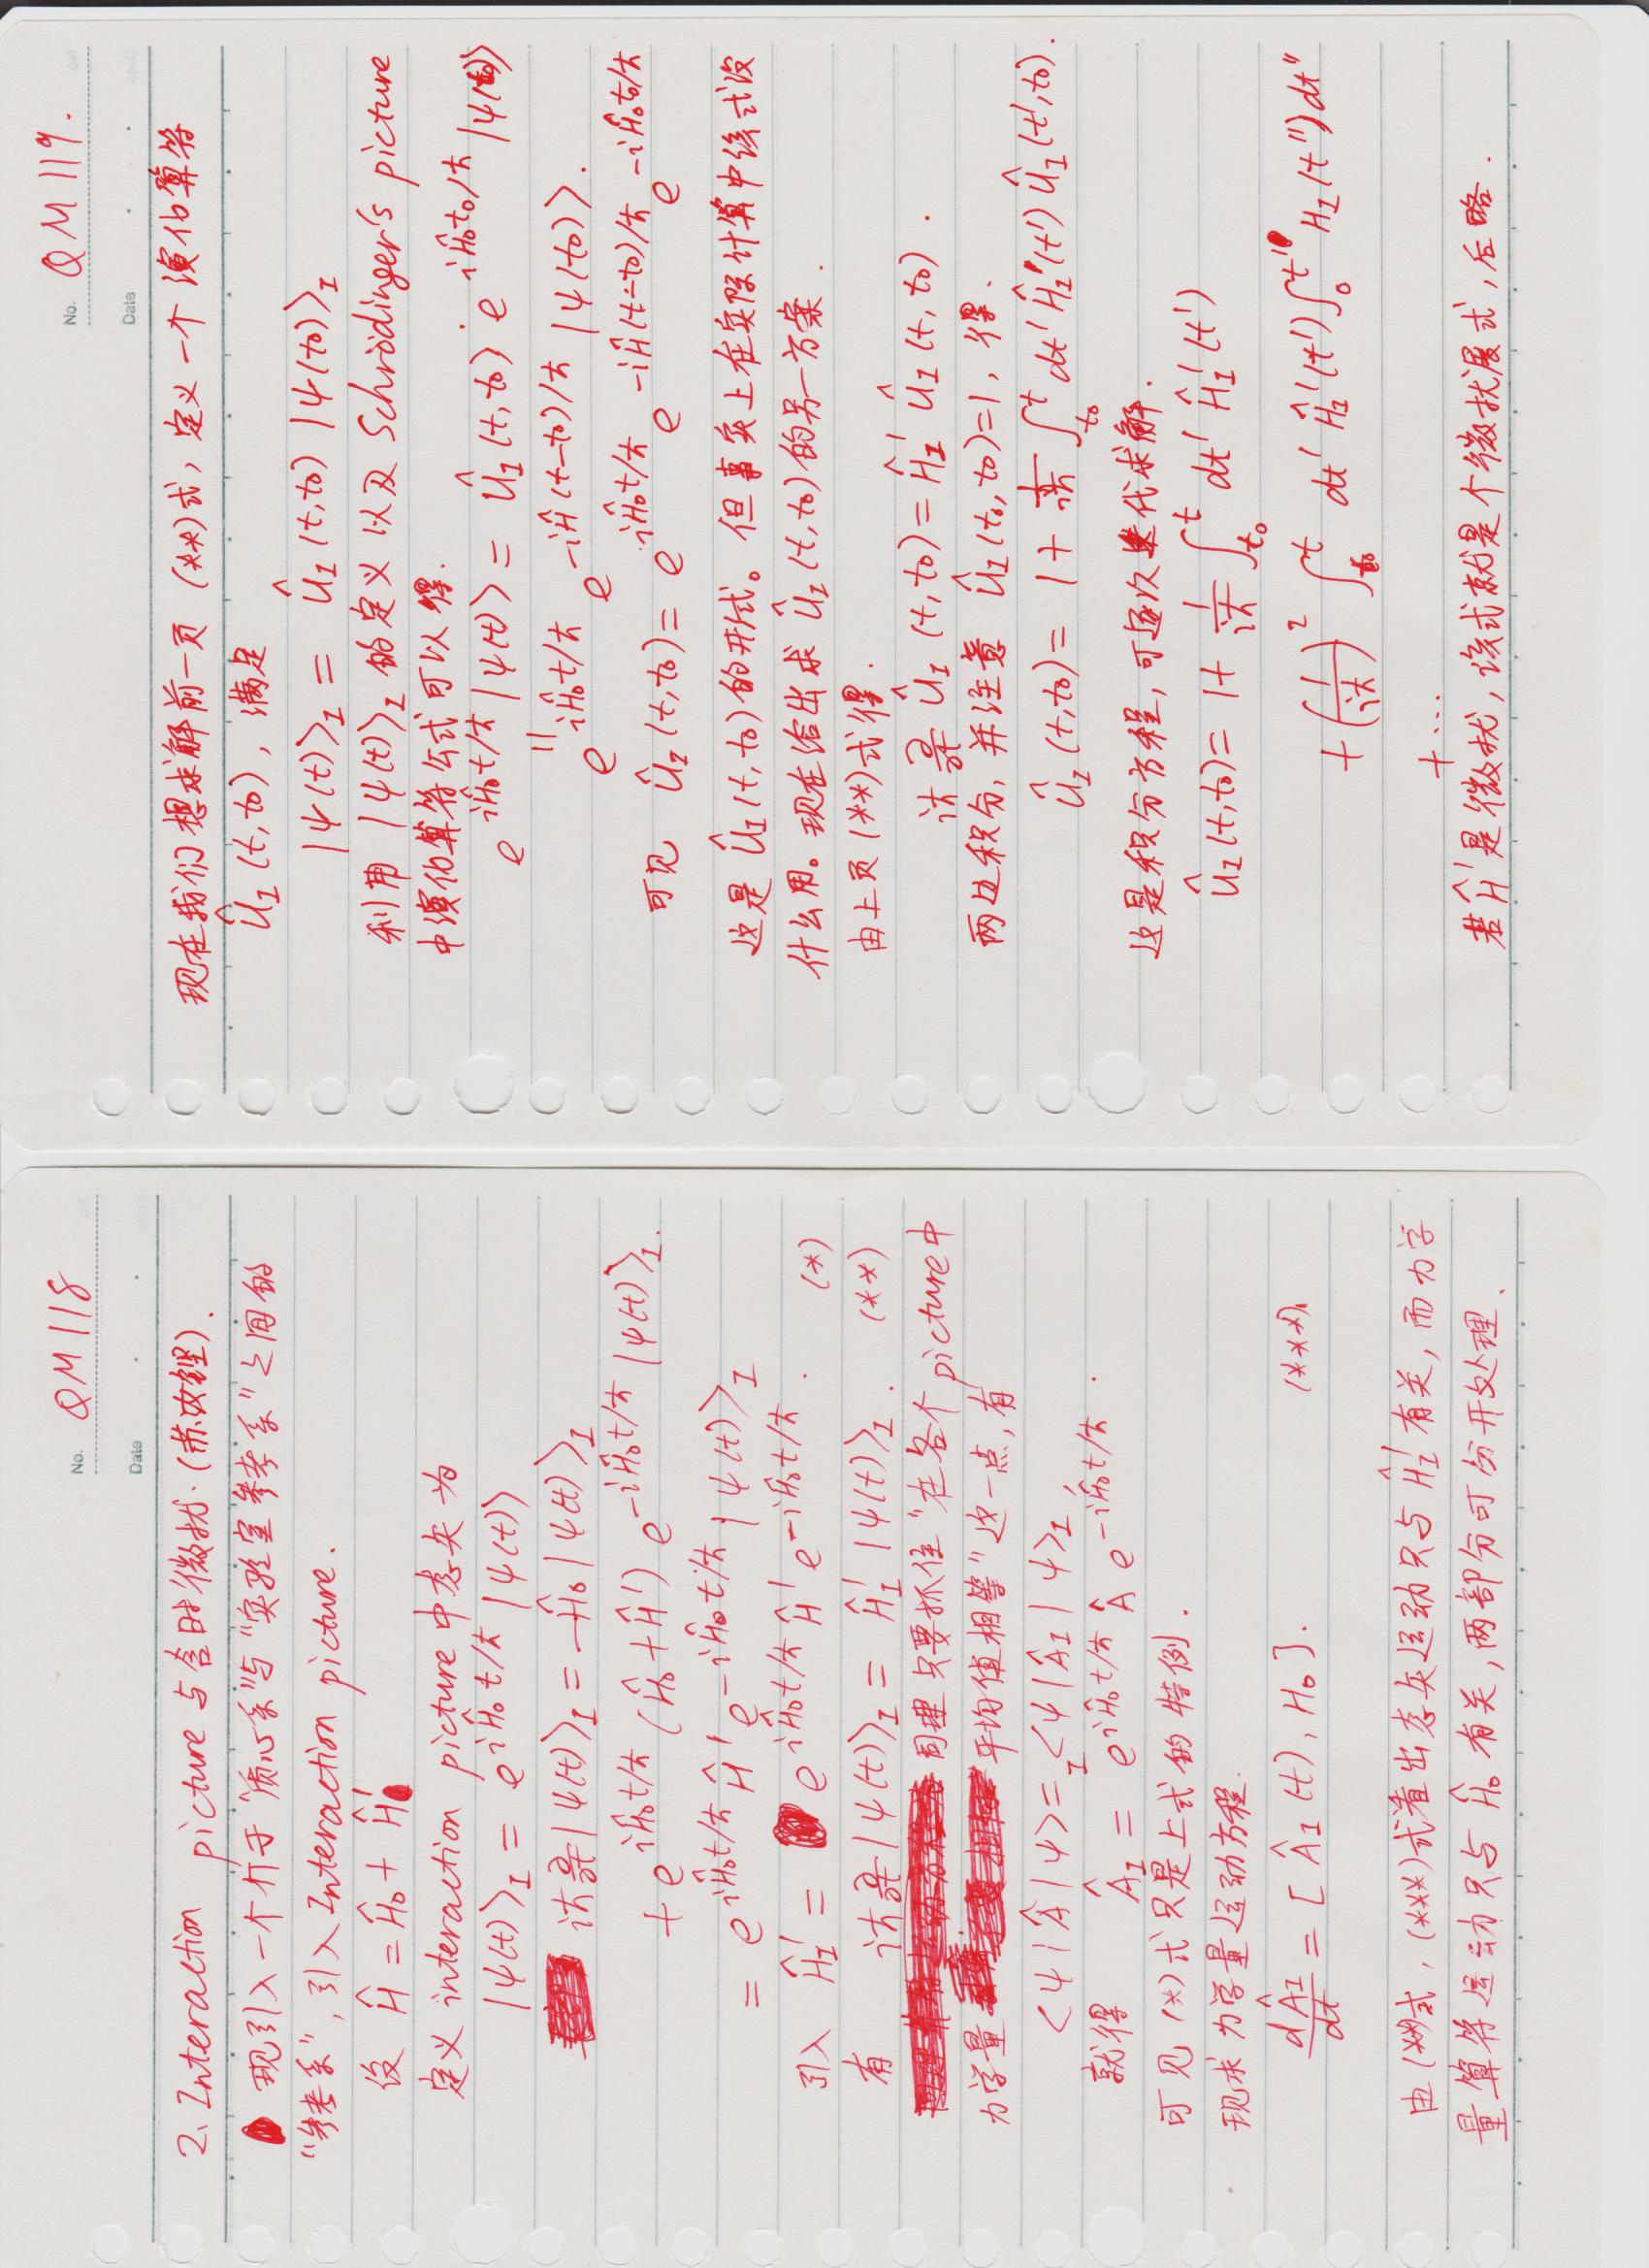 No. QM 118
Date
2. Interaction picture 与含时微扰. (苏汝铿).
现引入一个介于“质心系”与“实验室参考系”之间的
“参考系”, 引入 Interaction picture.
设 Ĥ = Ĥ₀ + Ĥ'
定义 interaction picture 中态矢为
|ψ(t)⟩_I = e^{iĤ₀t/ħ} |ψ(t)⟩
iħ ∂/∂t |ψ(t)⟩_I = -Ĥ₀ |ψ(t)⟩_I
+ e^{iĤ₀t/ħ} (Ĥ₀ + Ĥ') e^{-iĤ₀t/ħ} |ψ(t)⟩_I.
= e^{iĤ₀t/ħ} Ĥ' e^{-iĤ₀t/ħ} |ψ(t)⟩_I
引入 Ĥ'_I = e^{iĤ₀t/ħ} Ĥ' e^{-iĤ₀t/ħ}. (*)
有 iħ ∂/∂t |ψ(t)⟩_I = Ĥ'_I |ψ(t)⟩_I. (**)
同理 只要抓住“在各个 picture 中
力学量 平均值相等”这一点, 有
⟨ψ|Â|ψ⟩ = _I⟨ψ|Â_I|ψ⟩_I,
就得 Â_I = e^{iĤ₀t/ħ} Â e^{-iĤ₀t/ħ}.
可见 (*)式只是上式的特例.
现求力学量运动方程.
dÂ_I/dt = [Â_I(t), H₀]. (***).
由(**)式, (***)式看出态矢运动只与 Ĥ'_I 有关, 而力学
量算符运动只与 Ĥ₀ 有关, 两部分可分开处理.
No. QM 119.
Date
现在我们想求解前一页 (**)式, 定义一个演化算符
Û_I(t,t₀), 满足
|ψ(t)⟩_I = Û_I(t,t₀) |ψ(t₀)⟩_I
利用 |ψ(t)⟩_I 的定义以及 Schrödinger's picture
中演化算符公式可以得.
e^{iĤ₀t/ħ} |ψ(t)⟩ = Û_I(t,t₀) · e^{iĤ₀t₀/ħ} |ψ(t₀)⟩
" e^{iĤ₀t/ħ} e^{-iĤ(t-t₀)/ħ} |ψ(t₀)⟩.
可见 Û_I(t,t₀) = e^{iĤ₀t/ħ} e^{-iĤ(t-t₀)/ħ} e^{-iĤ₀t₀/ħ}
这是 Û_I(t,t₀) 的形式。但事实上在实际计算中该式没
什么用。现在给出求 Û_I(t,t₀) 的另一方案.
由上页 (**)式得.
iħ ∂/∂t Û_I(t,t₀) = Ĥ'_I Û_I(t,t₀).
两边积分, 并注意 Û_I(t₀,t₀)=1, 得.
Û_I(t,t₀) = 1 + 1/iħ ∫_{t₀}^{t} dt' Ĥ'_I(t') Û_I(t',t₀).
这是积分方程, 可逐次迭代求解.
Û_I(t,t₀) = 1 + 1/iħ ∫_{t₀}^{t} dt' Ĥ'_I(t')
+ (1/iħ)² ∫_{t₀}^{t} dt' Ĥ'_I(t') ∫_0^{t'} H_I(t'') dt''
+ ···
若Ĥ'是微扰, 该式就是个微扰展式, 后略.